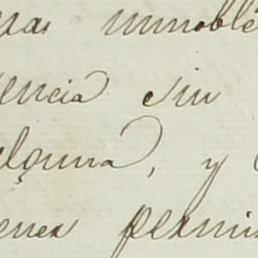 inmoble
encia sin
alguna, y
enea permis